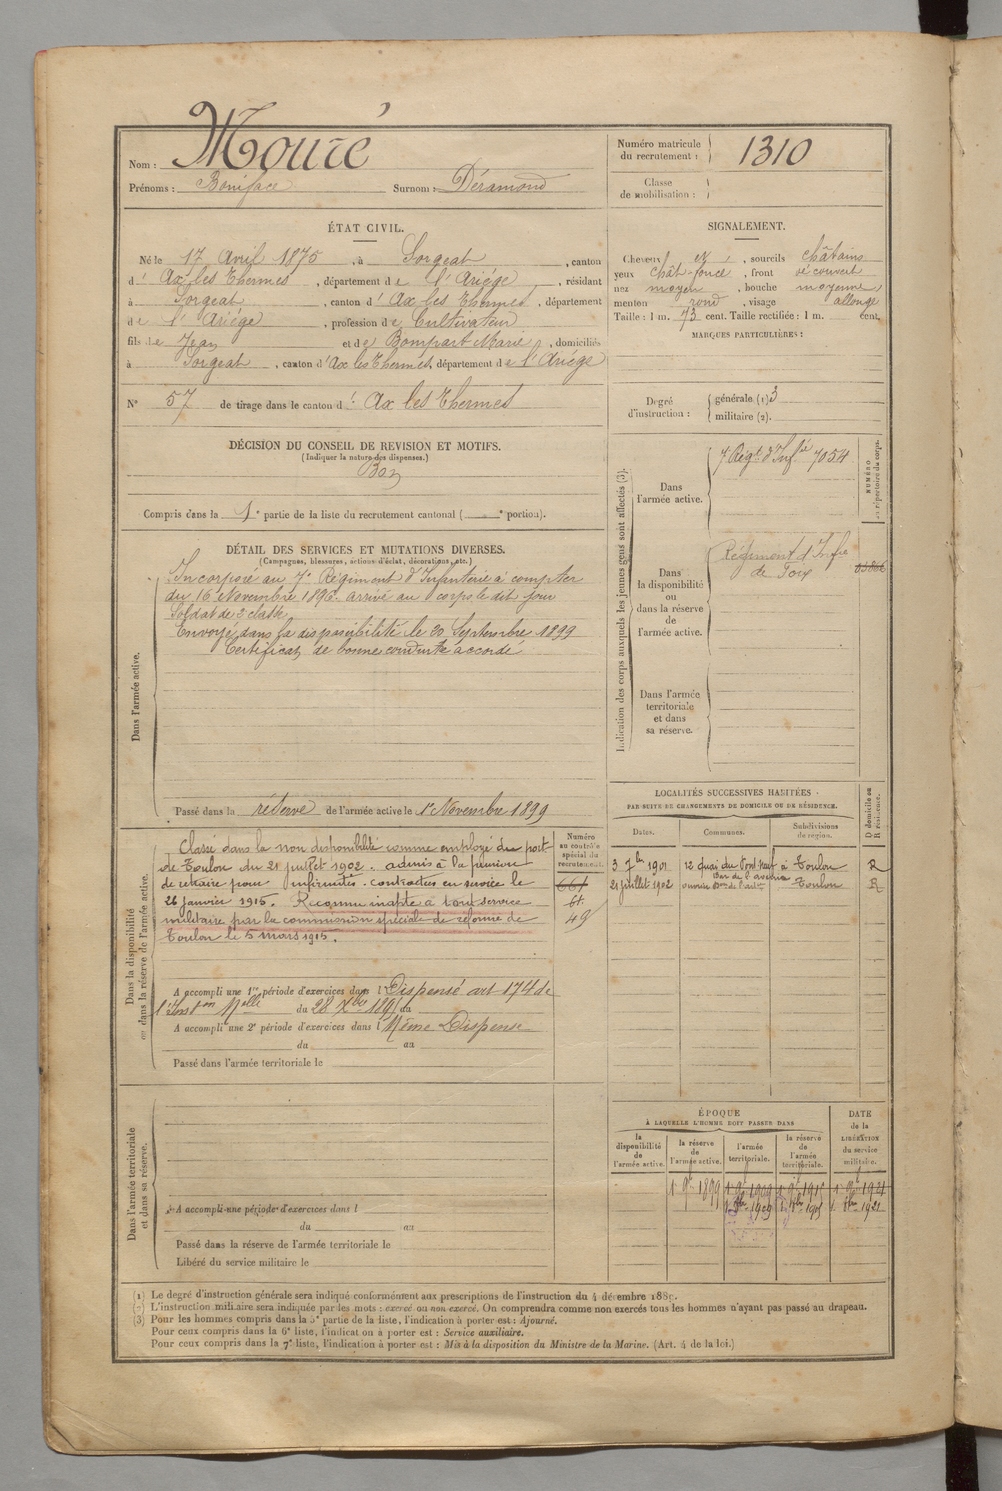 Nom : Mouré
Prénoms : Boniface Surnom : Déramond
Numéro matricule du recrutement : 1310
Classe de mobilisation :
ÉTAT CIVIL.
Né le 17 Avril 1875, à Sorgeat, canton
d' Ax les Thermes, département de l'Ariége, résidant
à Sorgeat, canton d' Ax les Thermes, département
de l'Ariége, profession de Cultivateur
fils de Jean et de Bompart Marie, domiciliés
à Sorgeat, canton d' Ax les Thermes, département de l'Ariége
N° 57 de tirage dans le canton d' Ax les Thermes
SIGNALEMENT.
Cheveux et, sourcils châtains
yeux chât-foncé, front découvert
nez moyen, bouche moyenne,
menton rond, visage allongé
Taille : 1 m. 73 cent. Taille rectifiée : 1 m. cent.
MARQUES PARTICULIÈRES :
Degré d'instruction : générale (1) 3
militaire (2).
DÉCISION DU CONSEIL DE REVISION ET MOTIFS.
(Indiquer la nature des dispenses.)
Bon
Compris dans la 1e partie de la liste du recrutement cantonal ( e portion).
DÉTAIL DES SERVICES ET MUTATIONS DIVERSES.
(Campagnes, blessures, actions d'éclat, décorations, etc.)
Dans l'armée active.
Incorporé au 7e Régiment d'Infanterie à compter
du 16 Novembre 1896. arrivé au corps le dit jour
Soldat de 2e classe
Envoyé dans la disponibilité le 20 Septembre 1899
Certificat de bonne conduite accordé
Passé dans la réserve de l'armée active le 1er Novembre 1899
Indication des corps auxquels les jeunes gens sont affectés (3).
NUMÉRO au répertoire du corps.
Dans l'armée active.
7e Régt d'Infie 7054
Dans la disponibilité ou dans la réserve de l'armée active.
Régiment d'Infie
de Foix
Dans l'armée territoriale et dans sa réserve.
LOCALITÉS SUCCESSIVES HABITÉES
PAR SUITE DE CHANGEMENTS DE DOMICILE OU DE RÉSIDENCE.
Dates. Communes. Subdivisions de région. D domicile ou R résidence.
3 7bre 1901 12 Quai du Port neuf à Toulon R
21 juillet 1902 Toulon R
Dans la disponibilité ou dans la réserve de l'armée active.
Numéro au contrôle spécial du recrutement.
Classé dans la non disponibilité comme employé du port
de Toulon du 21 juillet 1902. admis à la pension
de retraite pour infirmités contractées en service le
26 janvier 1915. Reconnu inapte à tout service
militaire par la commission spéciale de réforme de
Toulon le 5 mars 1915.
661
61
49
A accompli une 1re période d'exercices dans l Dispensé art 174 de
l'Inston Melle du 28 Xbre 1895 au
A accompli une 2e période d'exercices dans l Même Dispense
du au
Passé dans l'armée territoriale le
Dans l'armée territoriale et dans sa réserve.
A accompli une période d'exercices dans l
du au
Passé dans la réserve de l'armée territoriale le
Libéré du service militaire le
ÉPOQUE
À LAQUELLE L'HOMME DOIT PASSER DANS
la disponibilité de l'armée active. la réserve de l'armée active. l'armée territoriale. la réserve de l'armée territoriale. DATE de la LIBÉRATION du service militaire.
1 9bre 1899 1 9bre 1909 1 9bre 1915 1 9bre 1921
1909 1915 1921
(1) Le degré d'instruction générale sera indiqué conformément aux prescriptions de l'instruction du 4 décembre 1889.
(2) L'instruction militaire sera indiquée par les mots : exercé ou non exercé. On comprendra comme non exercés tous les hommes n'ayant pas passé au drapeau.
(3) Pour les hommes compris dans la 5e partie de la liste, l'indication à porter est : Ajourné.
Pour ceux compris dans la 6e liste, l'indication à porter est : Service auxiliaire.
Pour ceux compris dans la 7e liste, l'indication à porter est : Mis à la disposition du Ministre de la Marine. (Art. 4 de la loi.)